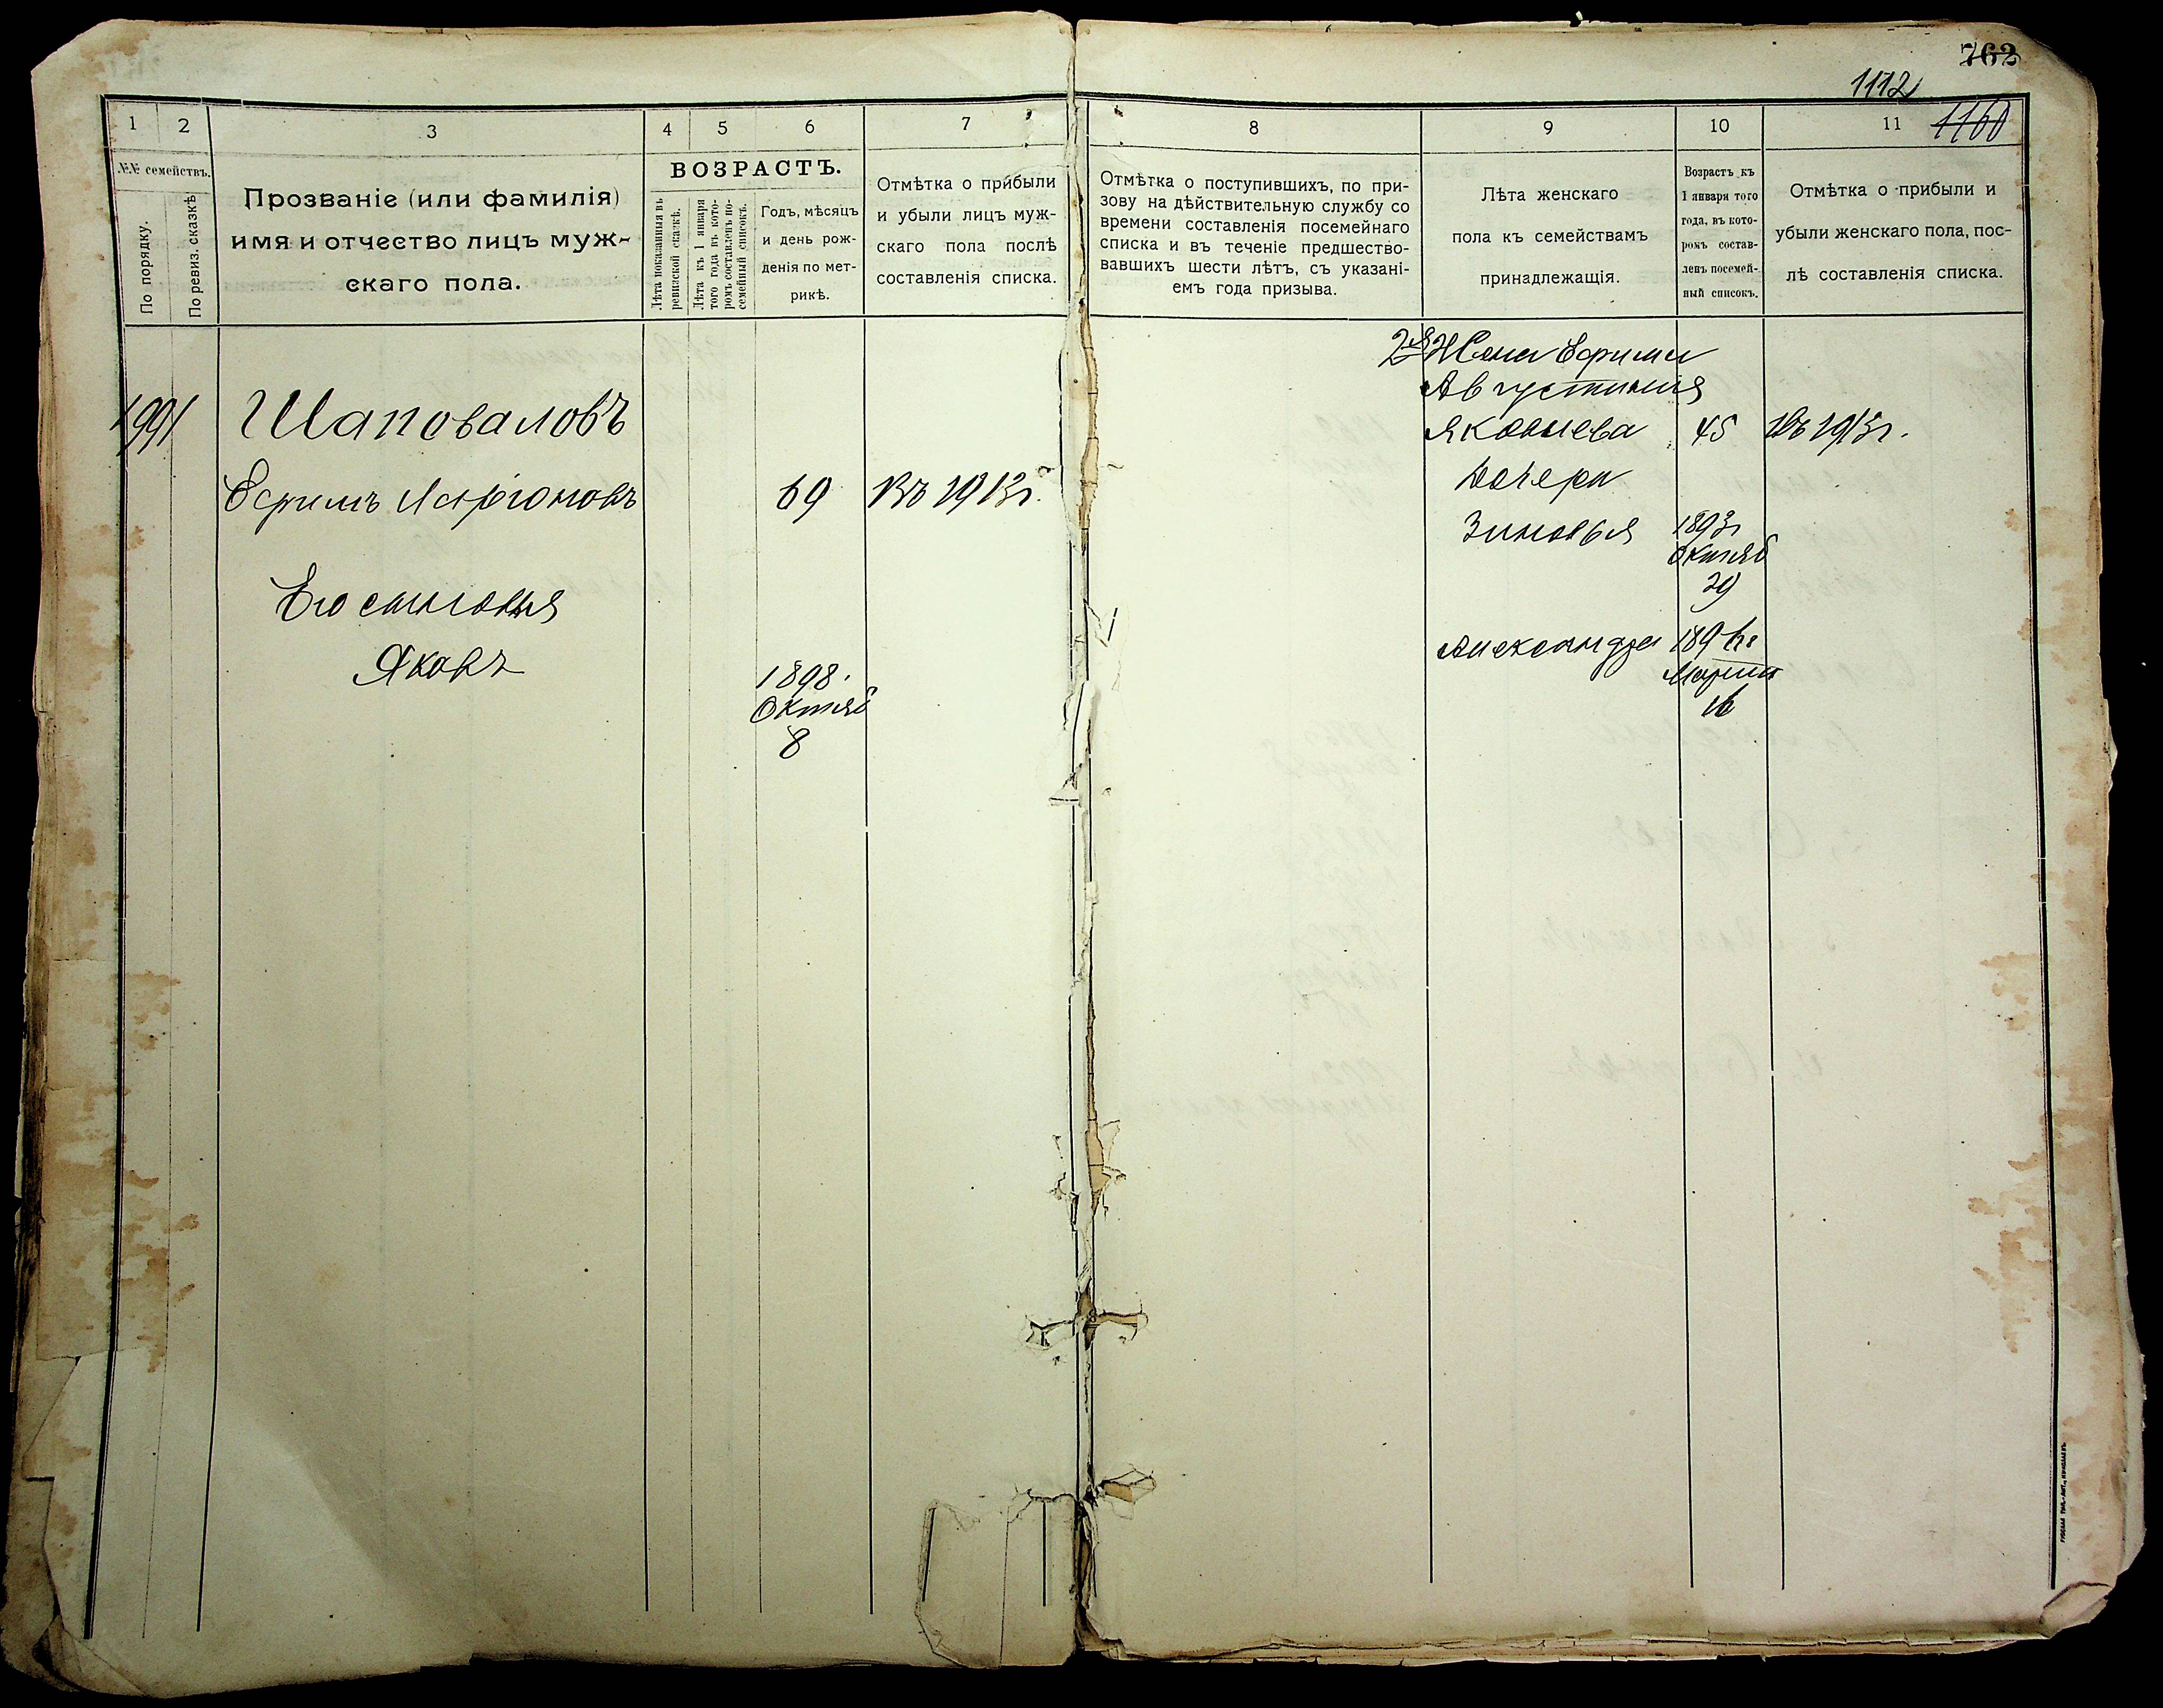 762
1112
1160
1
2
3
4
5
6
7
8
9
10
11
№№ семействъ.
По порядку.
По ревиз. сказкѣ
Прозваніе (или фамилія)
имя и отчество лицъ муж-
скаго пола.
ВОЗРАСТЪ.
Лѣта показанныя въ
ревизской сказкѣ.
Лѣта къ 1 января
того года въ кото-
ромъ составленъ по-
семейный списокъ.
Годъ, мѣсяцъ
и день рож-
денія по мет-
рикѣ.
Отмѣтка о прибыли
и убыли лицъ муж-
скаго пола послѣ
составленія списка.
Отмѣтка о поступившихъ, по при-
зову на дѣйствительную службу со
времени составленія посемейнаго
списка и въ теченіе предшество-
вавшихъ шести лѣтъ, съ указані-
емъ года призыва.
Лѣта женскаго
пола къ семействамъ
принадлежащія.
Возрастъ къ
1 января того
года, въ кото-
ромъ состав-
ленъ посемей-
ный списокъ.
Отмѣтка о прибыли и
убыли женскаго пола, пос-
лѣ составленія списка.
1991
Шаповаловъ
Ефимъ Ларіоновъ
69
Въ 1913г.
Его сыновья
Яковъ
1898.
Октяб
8
2я Жена Ефима
Августинія
Яковлева
45
Въ 1913г.
Дочери
Зиновья
1893г
Октяб
29
Александра
1896г
Марта
16